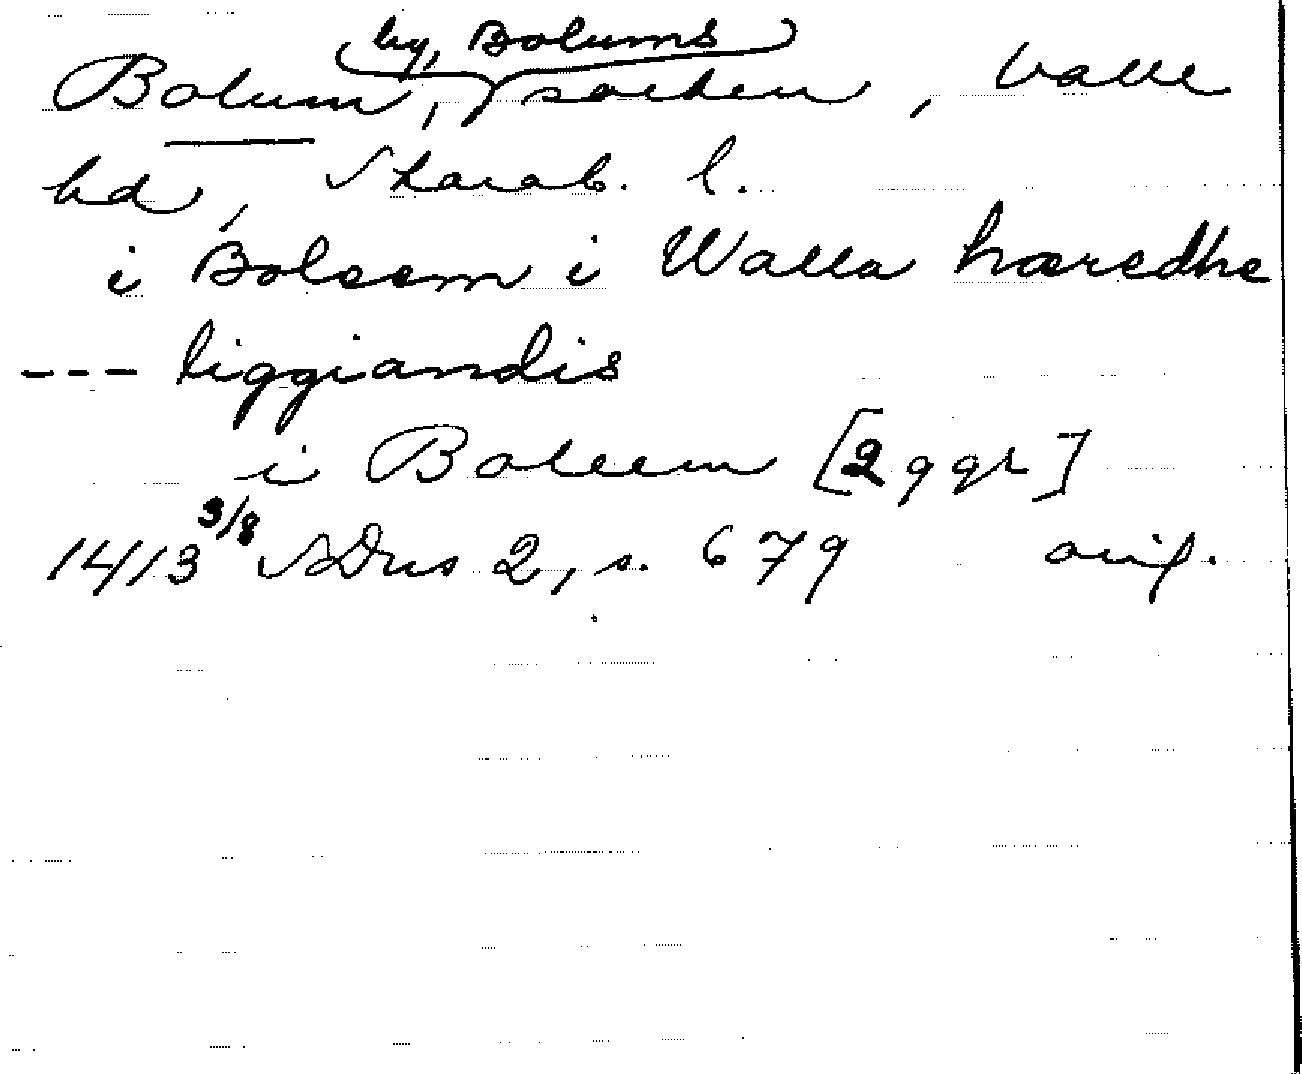 by, Bolums
Bolum, socken, Valle
hd, Skarab. l.
i Boleem i Walla hæredhe
--- liggiandis
i Boleem [2 ggr]
1413 3/8 SDns 2, s. 679 orig.